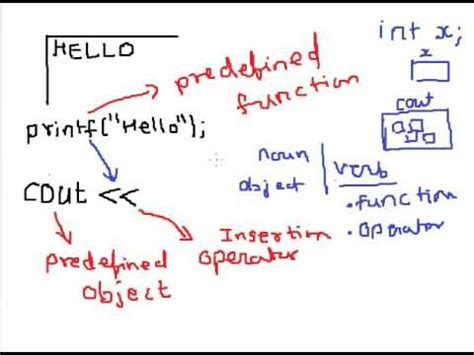 HELLO
int x;
x
predefined
function
cout
printf("Hello");
noun
object
verb
.function
.operator
cout <<
Insertion
operator
predefined
object